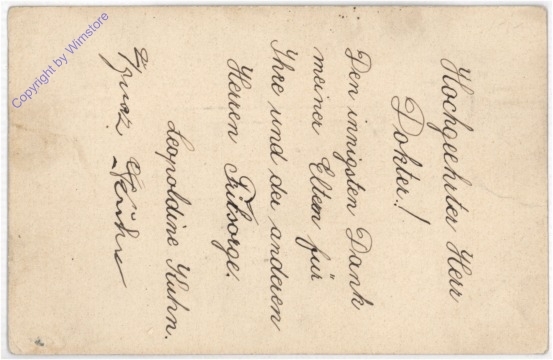 Hochgeehrter Herr
Dokter!
Den innigsten Dank
meiner Eltern für
Ihre und der anderen
Herren Fürsorge.
Leopoldine Kuhn.
Copyright by Wimstore